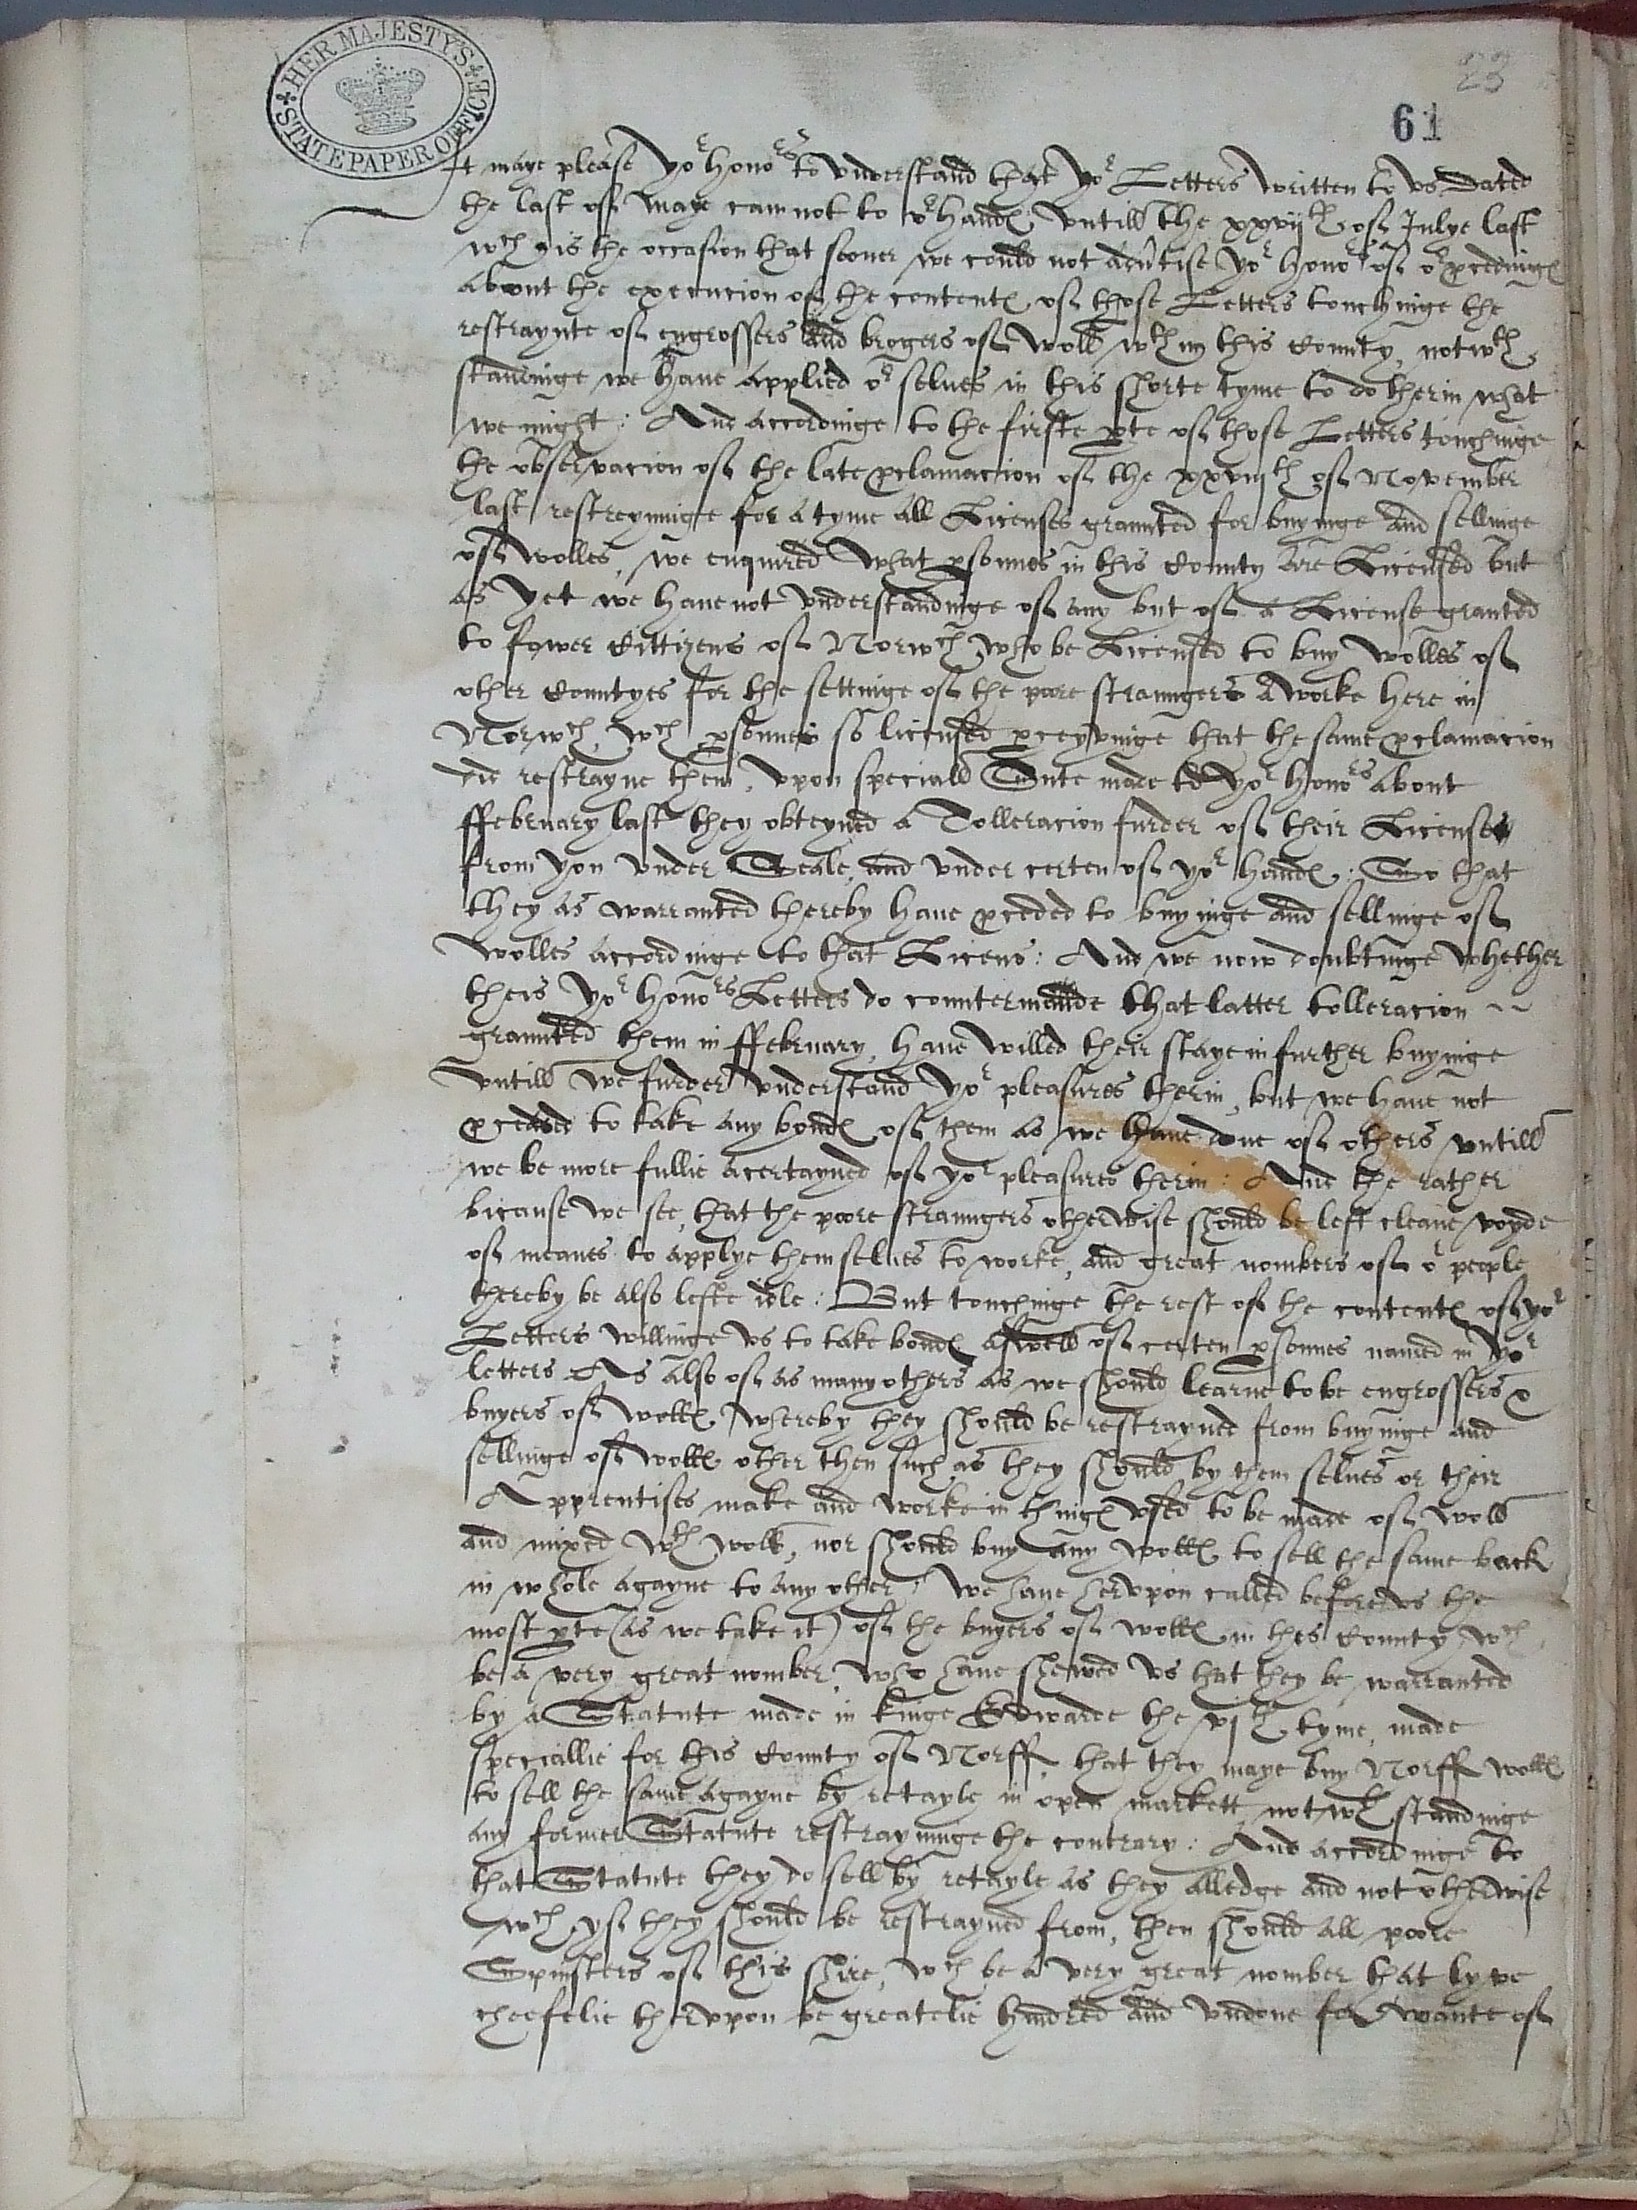 HER MAJESTY'S
STATE PAPER OFFICE
23
61
It maye please yor honors to vnderstand that yor Letters written to vs dated
the last of maye cam not to or hand℮ vntill the xxvijth of Julye last
wch is the occasion that sooner we could not adu'tise yor honors of or ꝓceding℮
about the execucion of the content℮ of those Letters touchinge the
restraynte of engrossers and brogers of woll wth in this County, notwth
standinge we haue applied or selues in this shorte tyme to do therin what
we might: And accordinge to the firste ꝑte of those Letters touchinge
the observacion of the late ꝓclamacion of the xxviijth of November
last restreyninge for a tyme all Licenses graunted for buyinge and sellinge
of wolles, we enquired what ꝑsonnes in this County are Licensed but
as yet we haue not vnderstandinge of any but of a License granted
to fower Cittizens of Norwch who be Licensed to buy wolles of
other Countyes for the settinge of the poore straungers a worke here in
Norwch, wch ꝑsonnes so licensed ꝑceyvinge that the same ꝓclamacion
did restrayne them, vpon speciall Sute made to yor honors about
ffebruary last they obteyned a Tolleracion furder of their Licenses
from you vnder Seale, and vnder certen of yor hand℮: So that
they as warranted thereby haue ꝓceded to buyinge and sellinge of
wolles accordinge to that Licens: And we now doubtinge whether
theis yor honors Letters do countermaunde that latter tolleracion ~
graunted them in ffebruary, haue willed their staye in further buyinge
vntill we furder vnderstand yor pleasures therin, but we haue not
ꝓceded to take any bond℮ of them as we haue done of others vntill
we be more fullie acertayned of yor pleasures therin: And the rather
bicause we see, that the poore straungers otherwise should be left cleane voyde
of meanes to applye themselues to worke, and great nombers of or people
thereby be also lefte idle: But touchinge the rest of the content℮ of yor
Letters willinge vs to take bond℮ aswell of certen ꝑsonnes named in yor
letters As also of as many others as we should learne to be engrossers &
buyers of woll℮ whereby they should be restrayned from buyinge and
sellinge of woll℮ other then such as they should by them selues or their
Apprentises make and worke in thing℮ vsed to be made of woll
and mixed wth woll, nor should buy any woll℮ to sell the same back
in whole agayne to any other: we haue hervpon called before vs the
most ꝑte (as we take it) of the buyers of woll℮ in this County wch
be a very great nomber, who haue shewed vs that they be warranted
by a Statute made in kinge Edwarde the vjth tyme, made
speciallie for this County of Norff. that they maye buy Norff woll℮
to sell the same agayne by retayle in open markett notwth standinge
any former Statute restrayninge the contrary: And accordinge to
that Statute they do sell by retayle as they alledge and not otherwise
wch yf they should be restrayned from, then should all poore
Spinsters of this shire, wch be a very great nomber that lyve
cheefelie thervpon be greatelie hindred and vndone for wante of